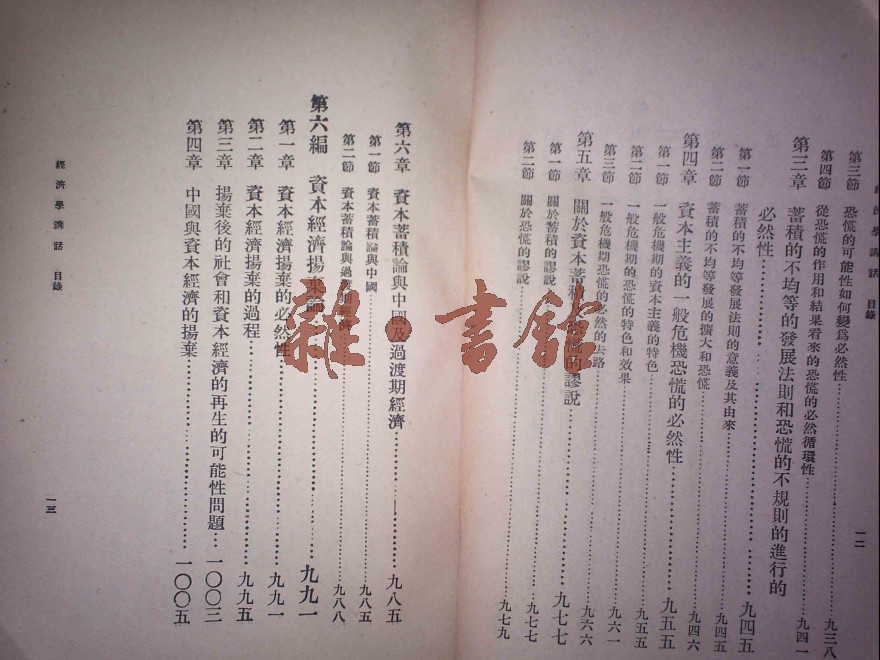 經濟學講話 目錄
一二
第三節 恐慌的可能性如何變爲必然性……九三八
第四節 從恐慌的作用和結果看來的恐慌的必然循環性……九四一
第三章 蓄積的不均等的發展法則和恐慌的不規則的進行的
必然性……九四五
第一節 蓄積的不均等發展法則的意義及其由來……九四五
第二節 蓄積的不均等發展的擴大和恐慌……九四六
第四章 資本主義的一般危機恐慌的必然性……九五五
第一節 一般危機期的資本主義的特色……九五五
第二節 一般危機期的恐慌的特色和效果……九六一
第三節 一般危機期恐慌的必然的去路……九六六
第五章 關於資本蓄積恐慌的謬說……九七七
第一節 關於蓄積的謬說……九七七
第二節 關於恐慌的謬說……九七九
第六章 資本蓄積論與中國及過渡期經濟……九八五
第一節 資本蓄積論與中國……九八五
第二節 資本蓄積論與過渡期經濟……九八八
第六編 資本經濟揚棄論……九九一
第一章 資本經濟揚棄的必然性……九九一
第二章 資本經濟揚棄的過程……九九五
第三章 揚棄後的社會和資本經濟的再生的可能性問題…一〇〇三
第四章 中國與資本經濟的揚棄……一〇〇五
經濟學講話 目錄
一三
雜·書館